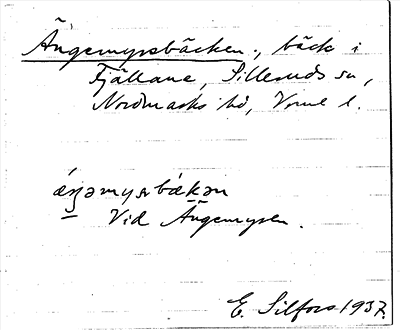 Ängemyrsbäcken., bäck i
Fjällane, Silleruds sn,
Nordmarks hd, Vrml l.
ǽŋəmysrbǽkən
Vid Ängemyren.
E. Silfors 1937.